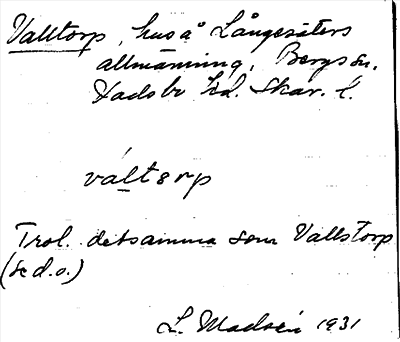 Valltorp, hus å Långesäters
allmänning, Bergs sn.
Vadsbo hd. Skar. l.
váltorp
Trol. detsamma som Vallstorp
(se d. o.)
L. Madsén 1931